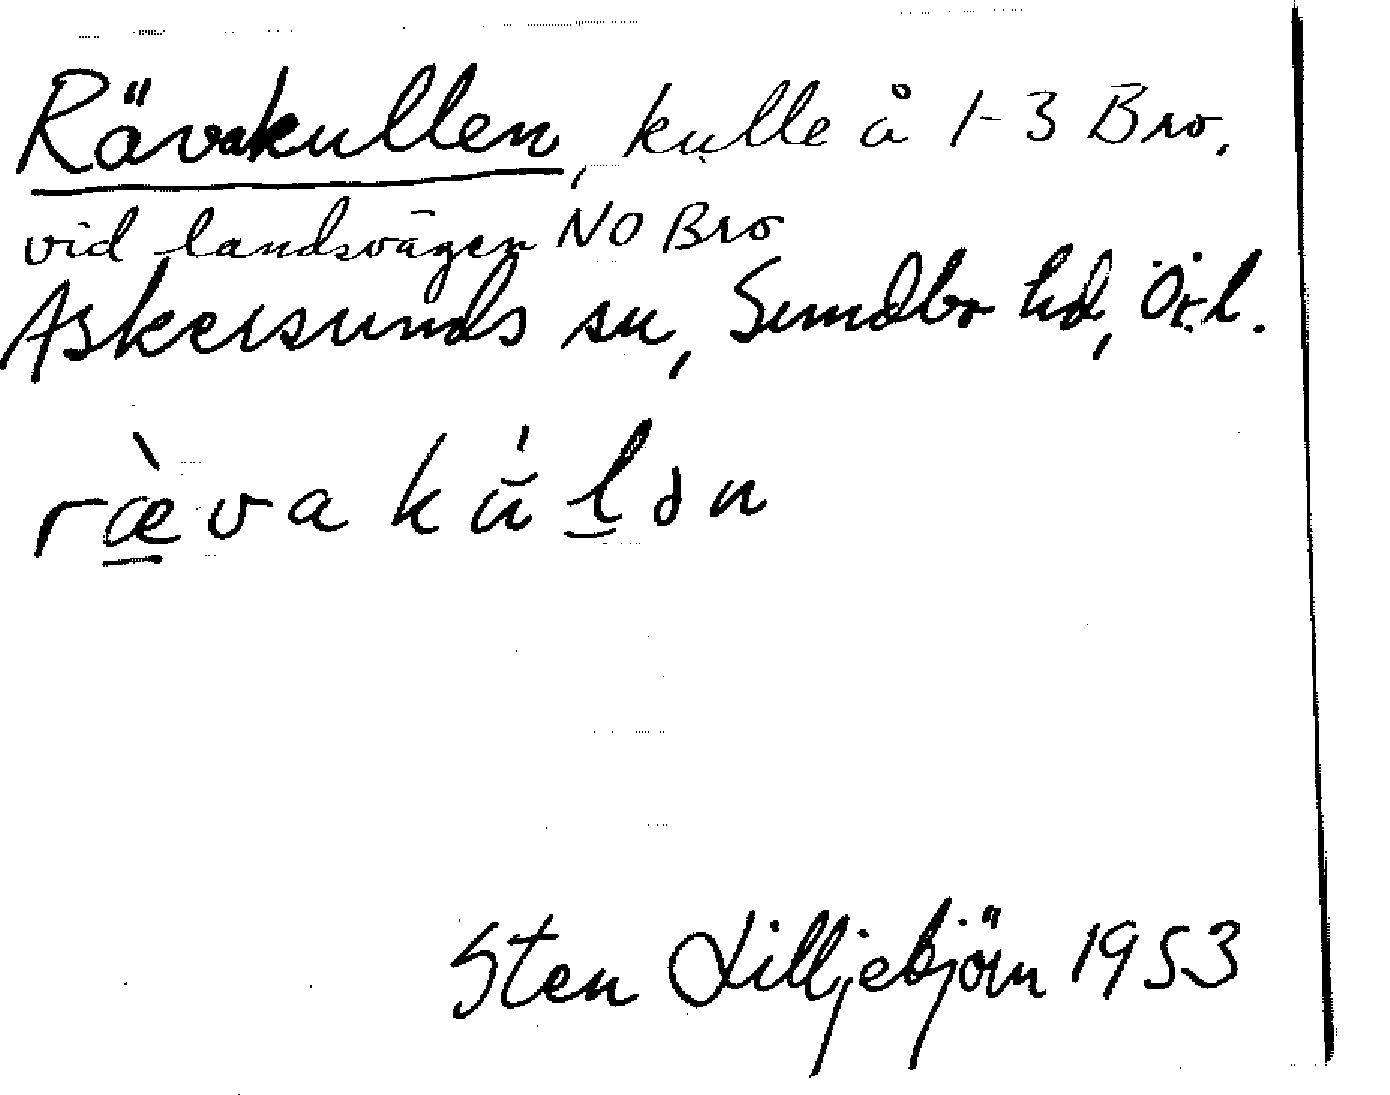 Rävakullen, kulle å 1-3 Bro,
vid landsvägen NO Bro
Askersunds sn, Sundbo hd, Ör.l.
ræ̀vakŭ́lən
Sten Lilljebjörn 1953